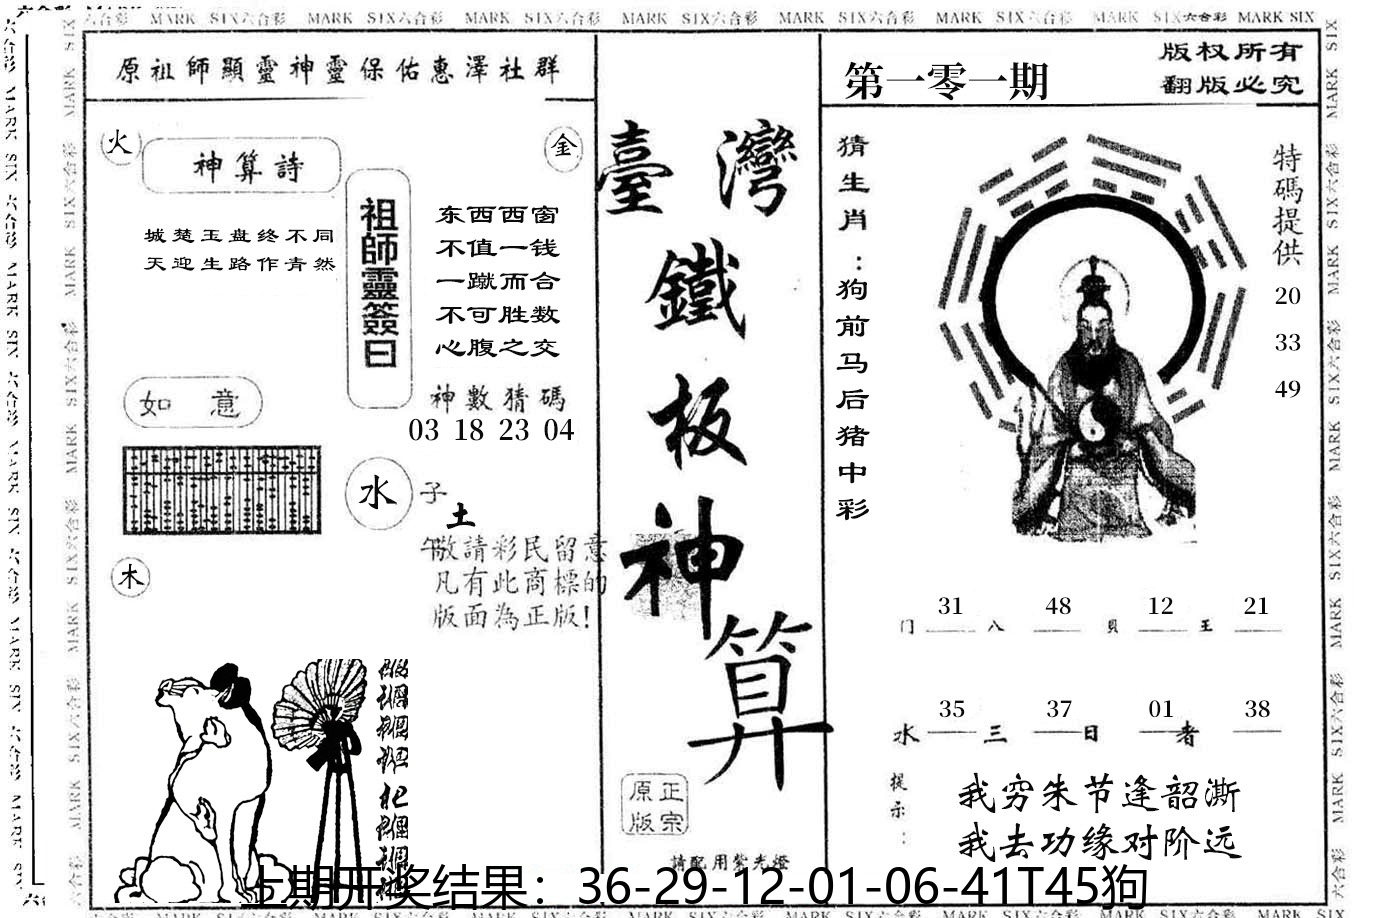 MARK SIX六合彩 MARK SIX六合彩 MARK SIX六合彩 MARK SIX六合彩 MARK SIX六合彩 MARK SIX六合彩 MARK SIX六合彩 MARK SIX
原祖師顯靈神靈保佑惠澤社群
火
金
神算詩
城楚玉盘终不同
天迎生路作青然
祖師靈簽曰
东西西窗
不值一钱
一蹴而合
不可胜数
心腹之交
神數猜碼
03 18 23 04
如意
水
子
土
午
木
敬請彩民留意
凡有此商標的
版面為正版!
臺灣
鐵
板
神
算
原正
版宗
請配用紫光燈
第一零一期
版权所有
翻版必究
猜生肖：狗前马后猪中彩
特碼提供
20
33
49
31 48 12 21
门 八 貝 王
35 37 01 38
水 三 日 者
提示：
我穷朱节逢韶澌
我去功缘对阶远
上期开奖结果：36-29-12-01-06-41T45狗